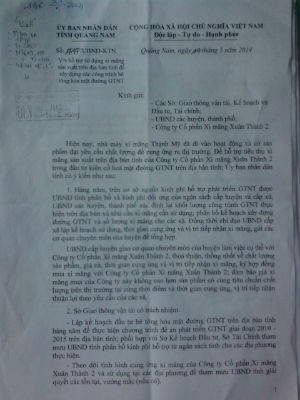 ỦY BAN NHÂN DÂN
TỈNH QUẢNG NAM
CỘNG HÒA XÃ HỘI CHỦ NGHĨA VIỆT NAM
Độc lập - Tự do - Hạnh phúc
Số: /UBND-KTN
Quảng Nam, ngày tháng 5 năm 2014
V/v hỗ trợ sử dụng xi măng
sản xuất trên địa bàn tỉnh để
xây dựng các công trình bê
tông hóa mặt đường GTNT
Kính gửi:
- Các Sở: Giao thông vận tải, Kế hoạch và
Đầu tư, Tài chính;
- UBND các huyện, thành phố;
- Công ty Cổ phần Xi măng Xuân Thành 2.
Hiện nay, nhà máy xi măng Thạnh Mỹ đã đi vào hoạt động và có sản
phẩm đạt yêu cầu chất lượng để cung ứng ra thị trường. Để hỗ trợ tiêu thụ xi
măng sản xuất trên địa bàn tỉnh của Công ty Cổ phần Xi măng Xuân Thành 2
trong đầu tư kiên cố hoá mặt đường GTNT trên địa bàn tỉnh; Ủy ban nhân dân
tỉnh có ý kiến như sau:
1. Hàng năm, trên cơ sở nguồn kinh phí hỗ trợ phát triển GTNT được
UBND tỉnh phân bổ và kinh phí đối ứng của ngân sách cấp huyện và cấp xã,
UBND các huyện, thành phố xác định lại khối lượng công trình GTNT thực
hiện trên địa bàn và nhu cầu xi măng cần sử dụng; phân bổ kế hoạch xây dựng
đường GTNT và số lượng xi măng cho các xã. Đồng thời chỉ đạo UBND cấp
xã lập kế hoạch sử dụng, thời gian cung ứng và vị trí tiếp nhận xi măng, gửi các
cơ quan chuyên môn của huyện để tổng hợp.
UBND cấp huyện giao cơ quan chuyên môn của huyện làm việc cụ thể với
Công ty Cổ phần Xi măng Xuân Thành 2, thoả thuận, thống nhất về chất lượng
sản phẩm, giá cả, thời gian cung ứng và vị trí tiếp nhận xi măng, ký hợp đồng
mua xi măng với Công ty Cổ phần Xi măng Xuân Thành 2; đảm bảo giá xi
măng mua của Công ty này không cao hơn sản phẩm có cùng tiêu chuẩn chất
lượng trên thị trường tại cùng thời điểm và thời gian cung ứng, vị trí tiếp nhận
thuận lợi theo yêu cầu của các xã.
2. Sở Giao thông vận tải có trách nhiệm:
- Lập kế hoạch đầu tư bê tông hóa mặt đường GTNT trên địa bàn tỉnh
hàng năm để thực hiện chương trình đề án phát triển GTNT giai đoạn 2010 -
2015 trên địa bàn tỉnh; phối hợp với Sở Kế hoạch Đầu tư, Sở Tài chính tham
mưu UBND tỉnh phân bổ kinh phí hỗ trợ từ ngân sách tỉnh cho các địa phương
thực hiện.
- Theo dõi tình hình cung ứng xi măng của Công ty Cổ phần Xi măng
Xuân Thành 2 và sử dụng tại các địa phương để tham mưu UBND tỉnh giải
quyết các tồn tại, vướng mắc (nếu có).
1